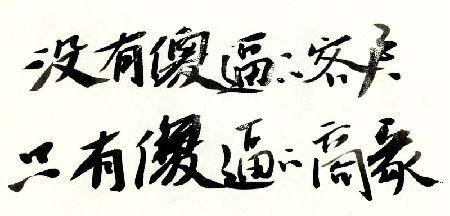 没有傻逼的客户
只有傻逼的商家